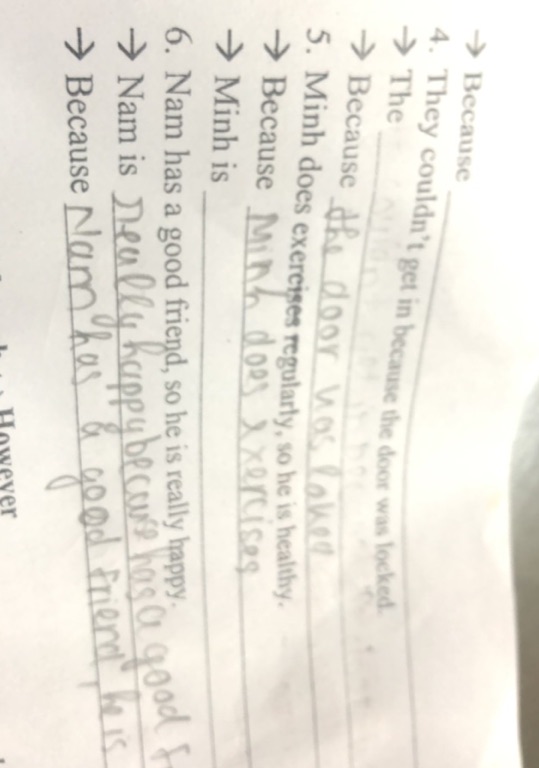 → Because
4. They couldn't get in because the door was locked.
→ The
→ Because the door was
5. Minh does exercises regularly, so he is healthy.
→ Because Minh does exercises
→ Minh is
6. Nam has a good friend, so he is really happy.
→ Nam is really happy because has a good
→ Because Nam has a good friend, he is
However